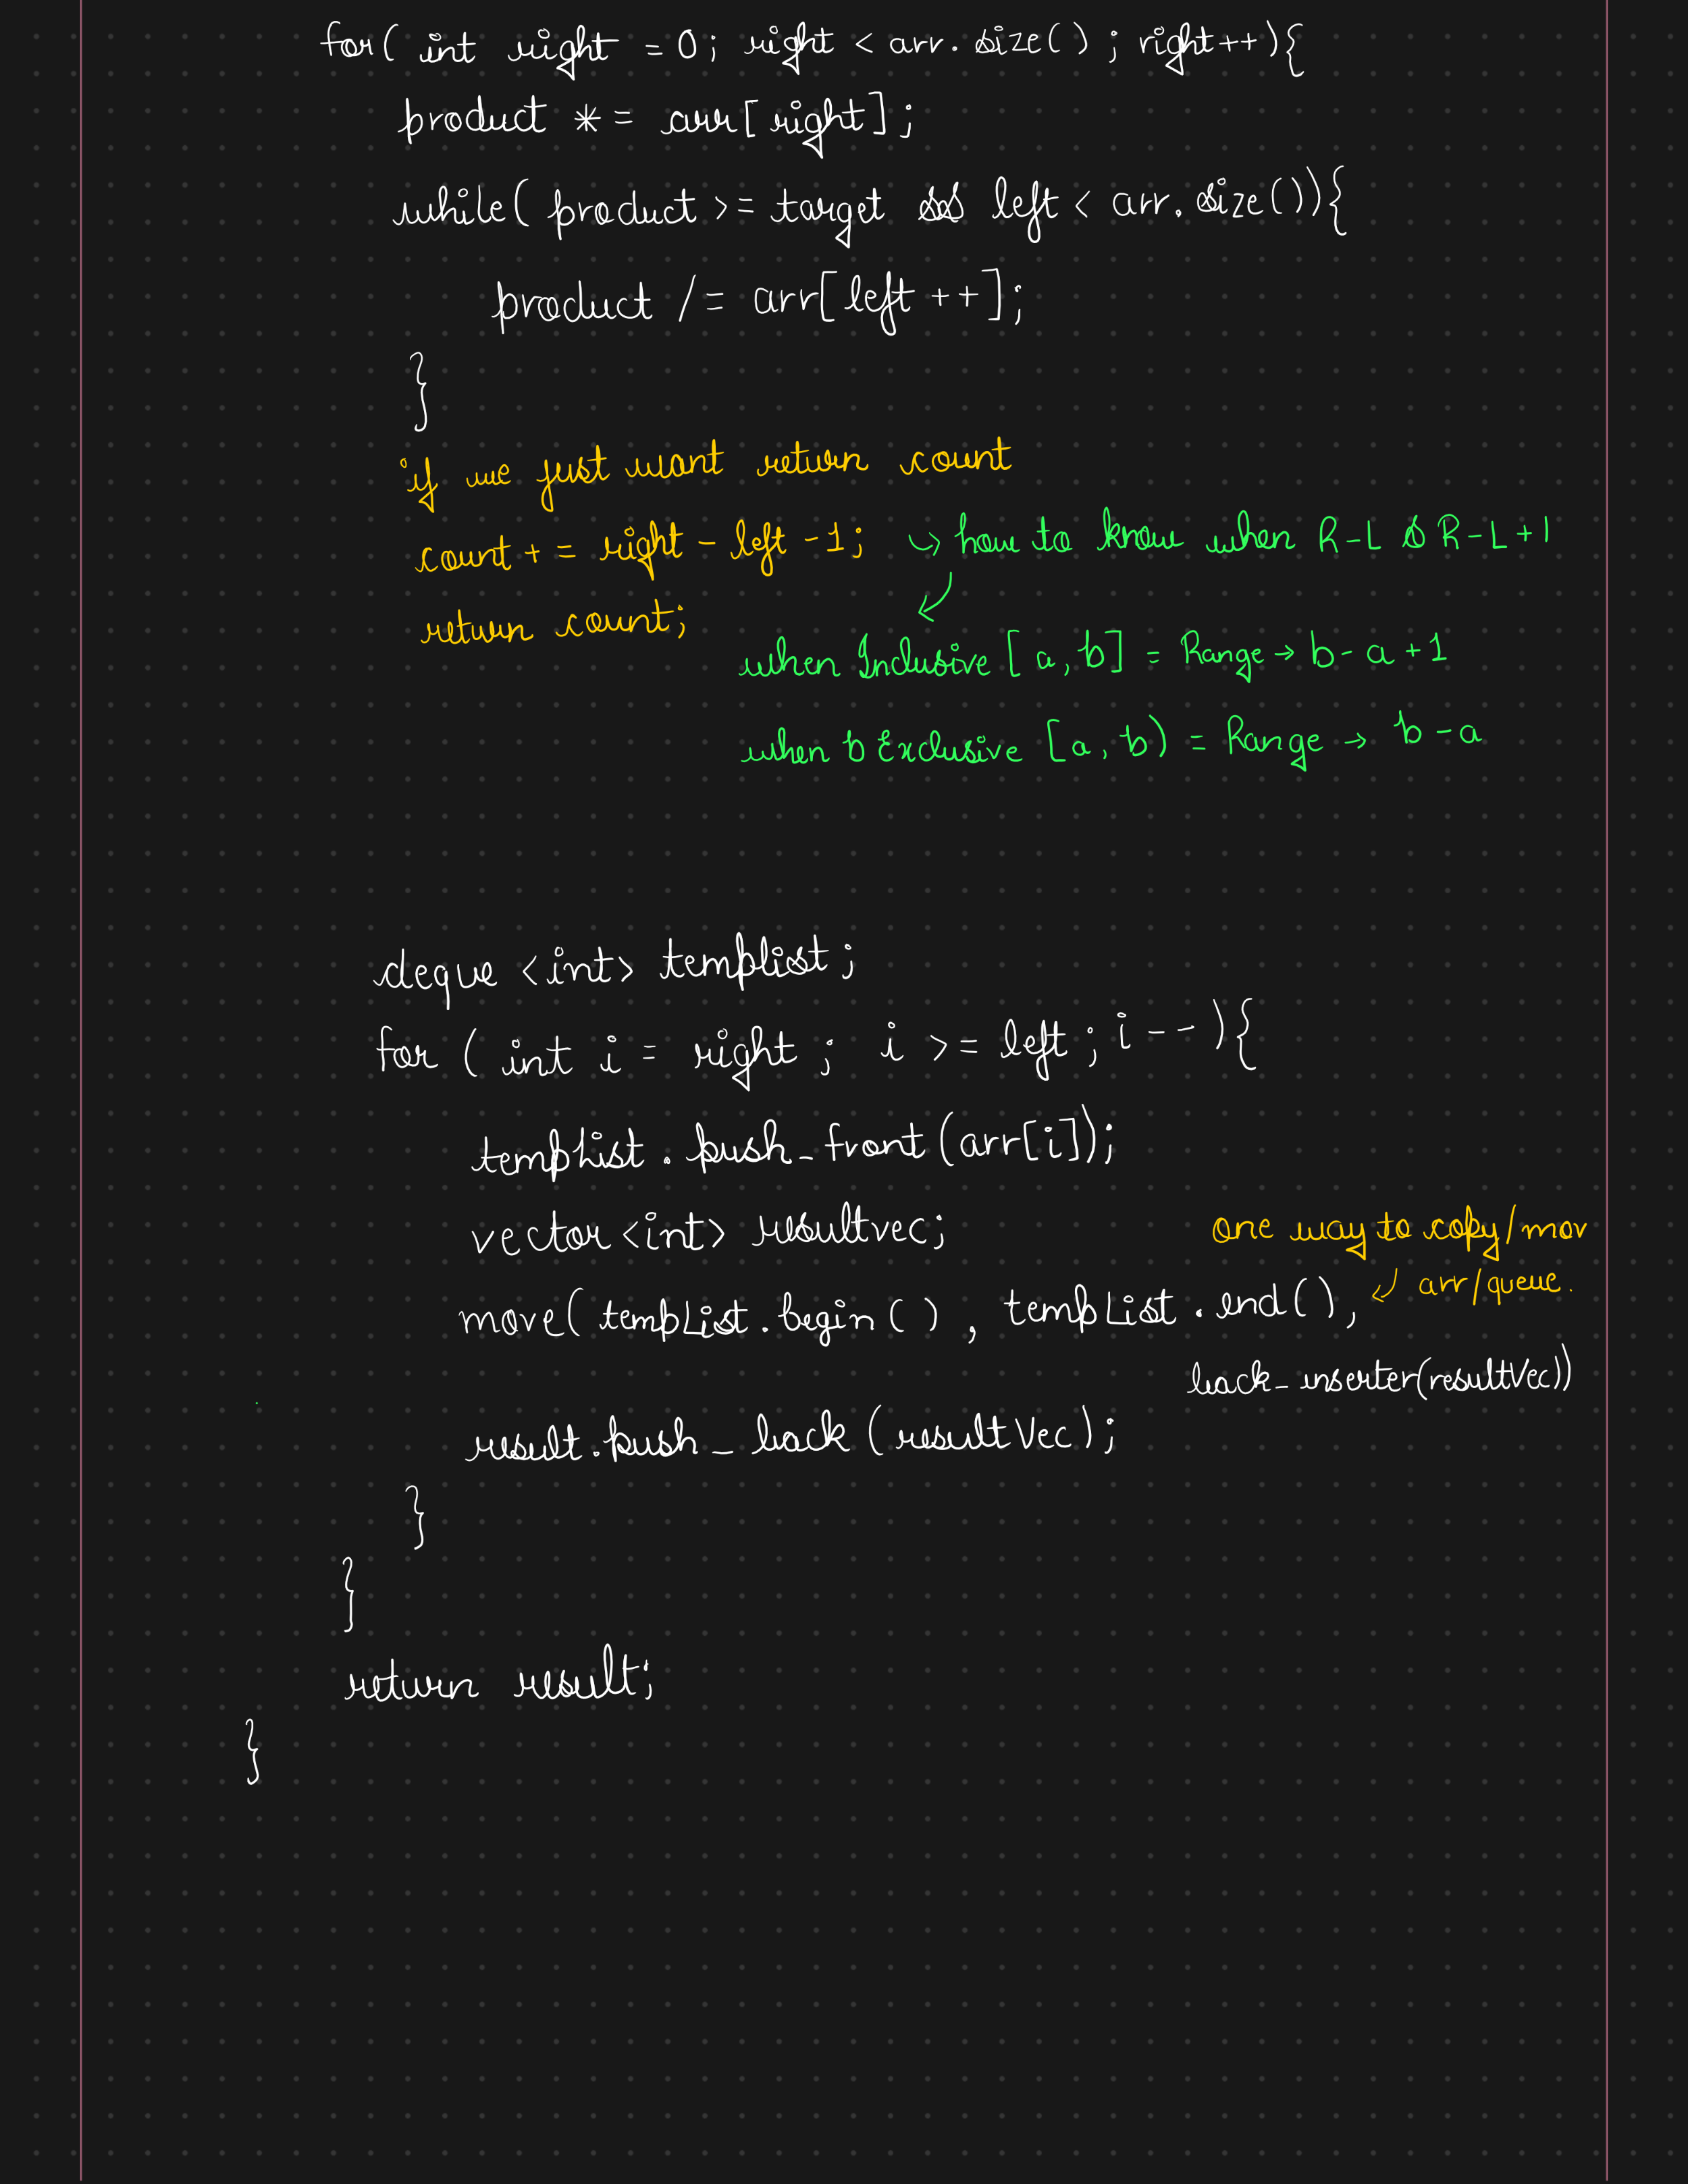 for( int right = 0; right < arr. size() ; right++){
product *= arr[right];
while( product >= target && left < arr. size()){
product /= arr[left ++];
}
if we just want return count
count + = right - left -1; ↳ how to know when R-L & R-L+1
return count;
when Inclusive [a, b] = Range → b- a +1
when b Exclusive [a, b) = Range → b -a
deque <int> templist;
for ( int i = right ; i >= left ; i -- ){
tempList . push_front (arr[i]);
vector <int> resultvec;
one way to copy/mov
arr/queue.
move( tempList . begin ( ) , tempList . end(),
back_inserter(resultVec))
result. push_back (resultVec);
}
}
return result;
}